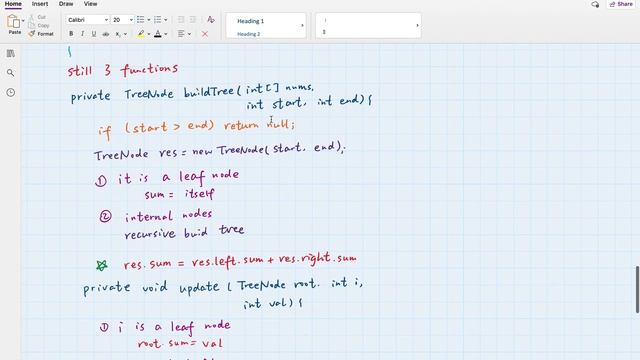 Home
Insert
Draw
View
Share
Cut
Copy
Paste
Format
Calibri
20
Heading 1
Heading 2
}
still 3 functions
private TreeNode buildTree (int[] nums,
int start, int end) {
if (start > end) return null;
TreeNode res = new TreeNode(start, end);
① it is a leaf node
sum = itself
② internal nodes
recursive buid tree
res.sum = res.left.sum + res.right.sum
private void update (TreeNode root. int i,
int val) {
① i is a leaf node
root.sum = val